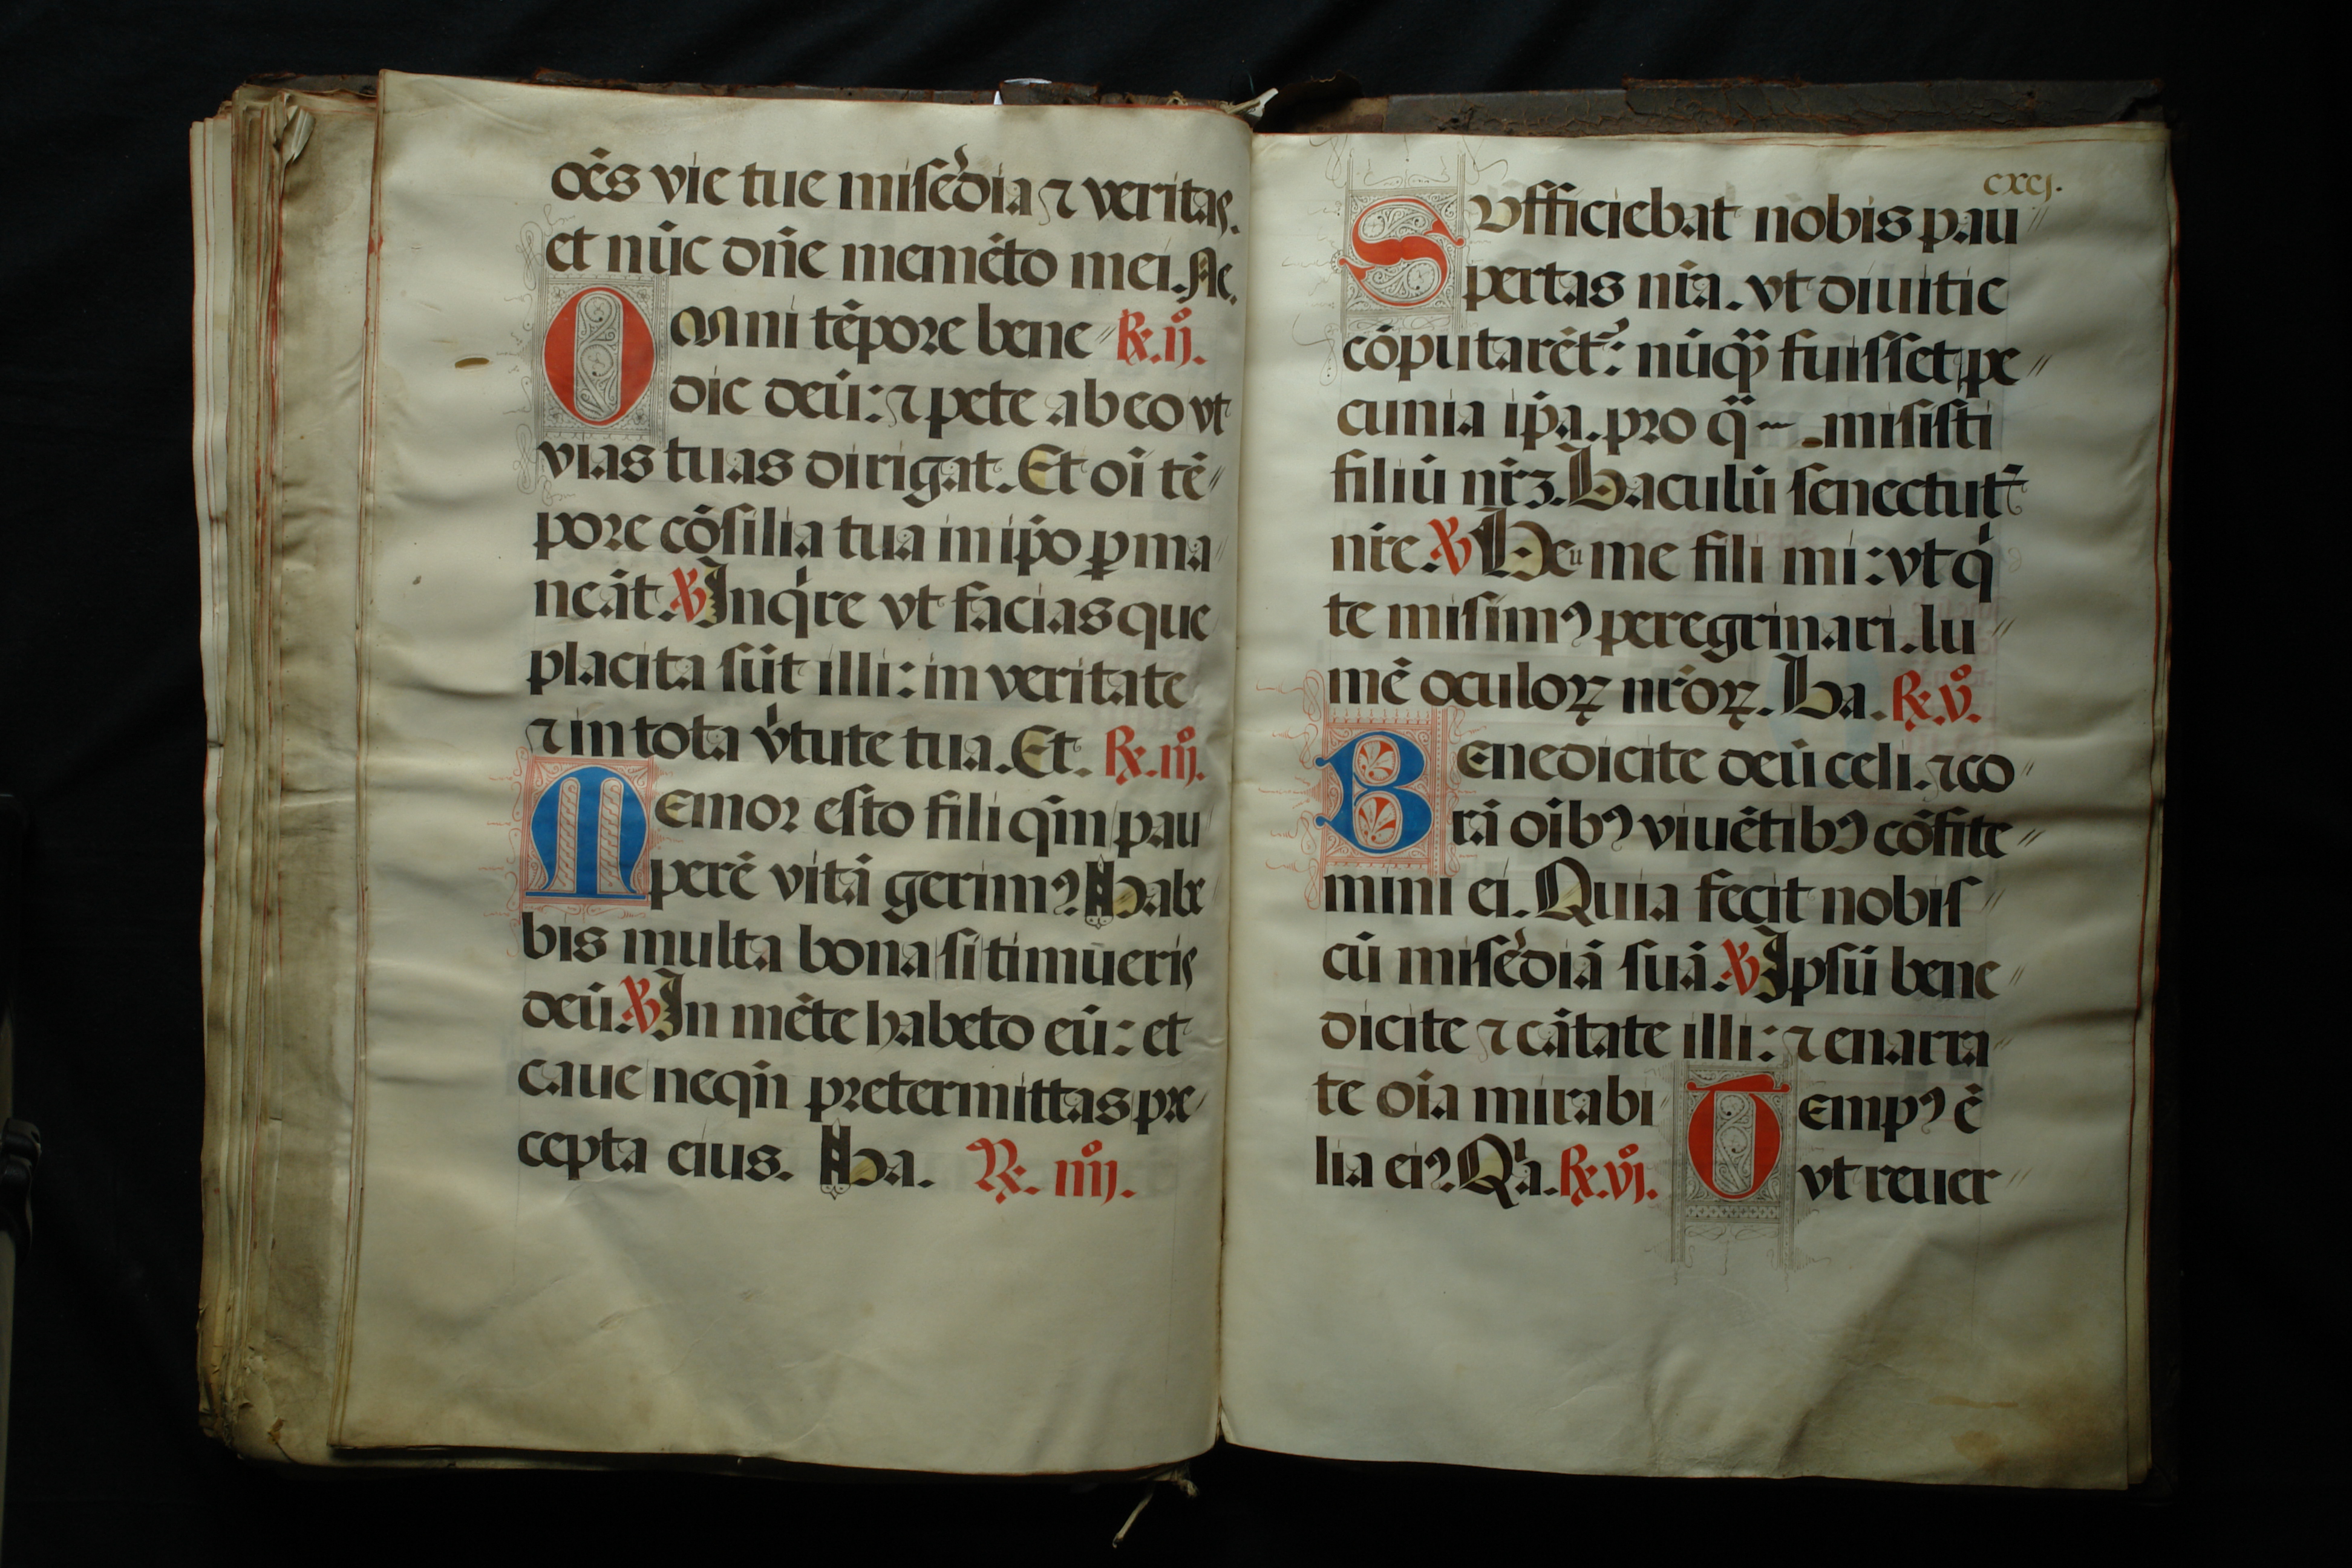 oēs vie tue misēdia ⁊ veritas.
et nūc dn̄e memēto mei. Ac.
Omni tēpore bene ℟. ij.
dic deū: ⁊ pete ab eo vt
vias tuas dirigat. Et oī tē
pore cōsilia tua in ip̄o ꝑma
neāt. ℣ Inqͥre vt facias que
placita sūt illi: in veritate
⁊ in tota v̓tute tua. Et. ℟. iij.
Memor esto fili qm̄ pau
perē vitā gerimꝰ Habe
bis multa bona si timueris
deū. ℣ In mēte habeto eū: et
caue neqn̄ pretermittas pre
cepta eius. Ha. ℟. iiij.
cxcj.
Sufficiebat nobis pau
pertas nr̄a. vt diuitie
cōputarēt᷑: nūqͣ fuisset pe
cunia ip̄a. pro qͣ misisti
filiū nr̄ꝫ. Baculū senectut
nr̄e. ℣ Heu me fili mi: vt qͥ
te misimꝰ peregrinari. lu
mē oculoꝝ nr̄oꝝ. Ba. ℟. v.
Benedicite deū celi. ⁊ co
rā oībꝰ viuētibꝰ cōfite
mini ei. Quia fecit nobis
cū misēdiā suā. ℣ Ipsū bene
dicite ⁊ cātate illi: ⁊ enarra
te oīa mirabi
lia eiꝰ. Qͥa. ℟. vj.
Tempꝰ ē
vt reuer